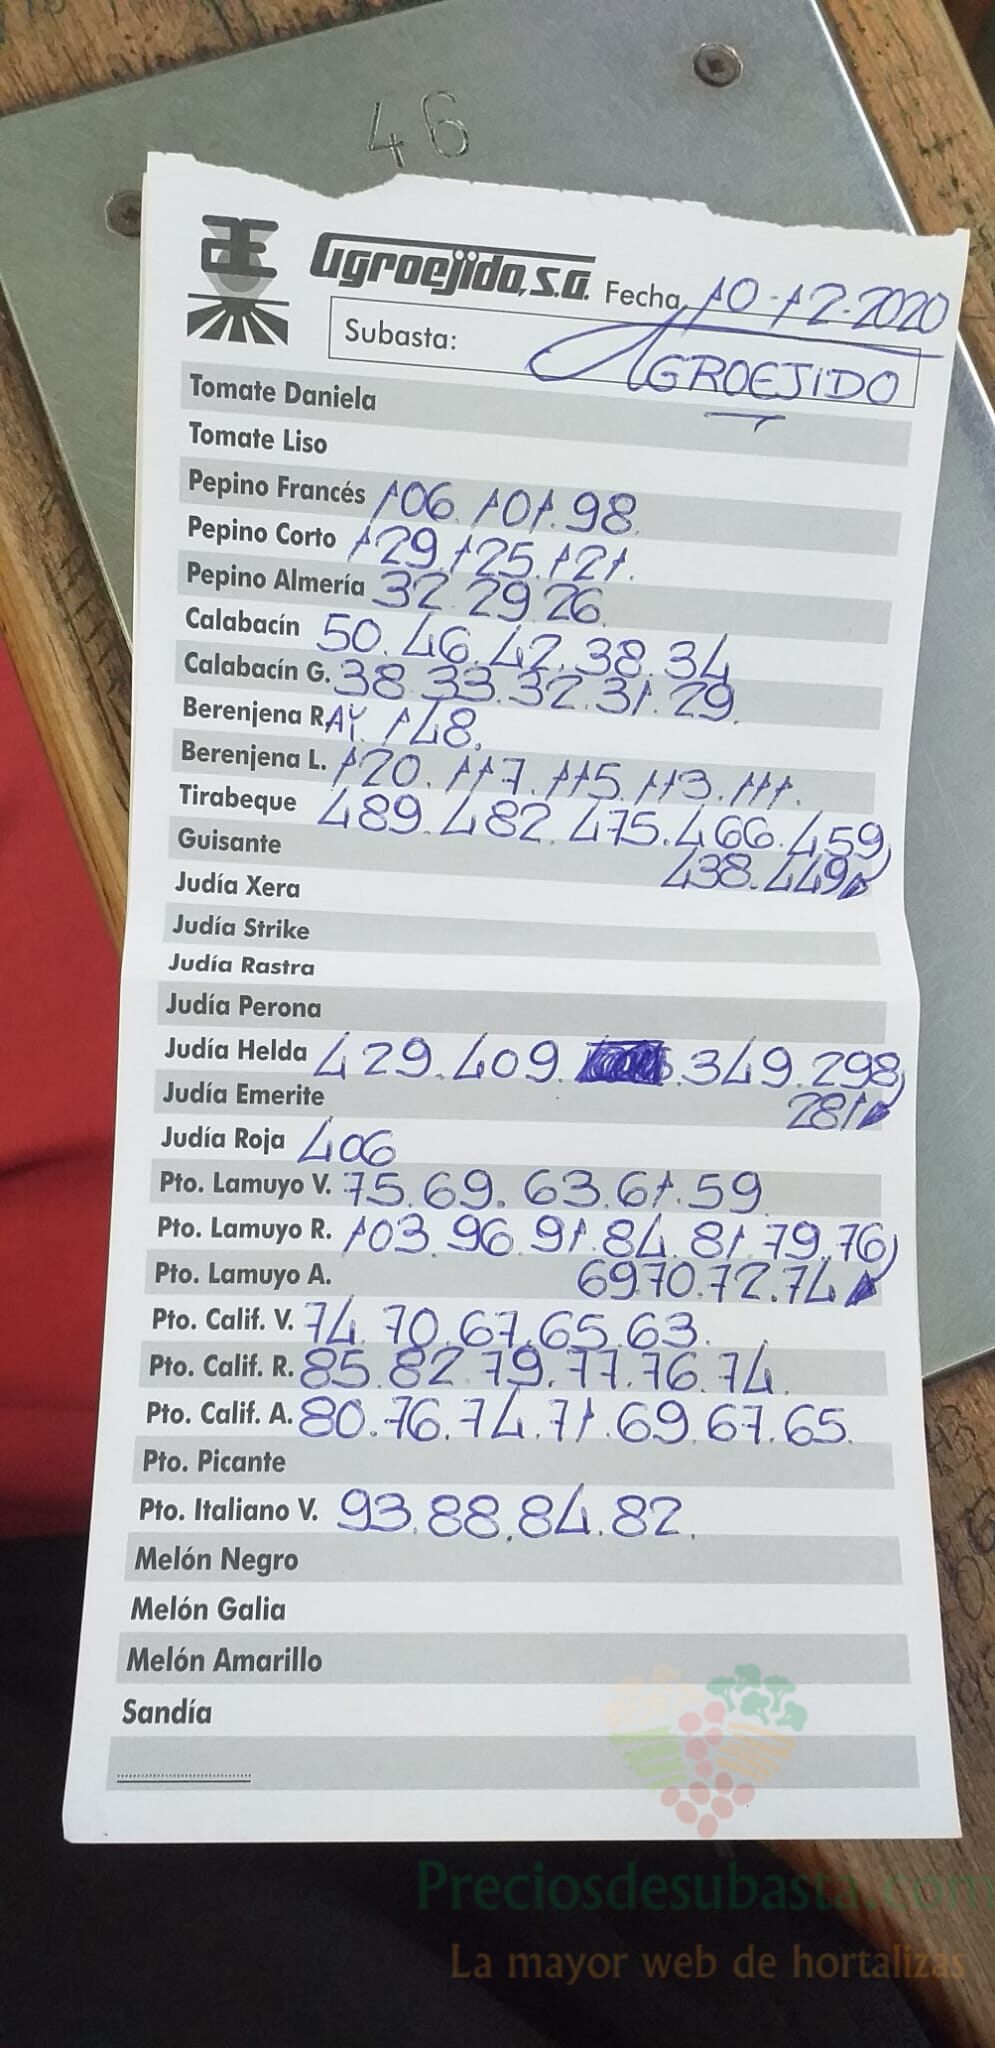 46
Agroejido, S.A. Fecha 10-12-2020
Subasta: AGROEJIDO
Tomate Daniela
Tomate Liso
Pepino Francés 106. 101. 98.
Pepino Corto 129. 125. 121.
Pepino Almería 32. 29. 26.
Calabacín 50. 46. 42. 38. 34
Calabacín G. 38. 33. 32. 31. 29.
Berenjena RAY. 148.
Berenjena L. 120. 117. 115. 113. 111.
Tirabeque 489. 482. 475. 466. 459
Guisante 438. 449
Judía Xera
Judía Strike
Judía Rastra
Judía Perona
Judía Helda 429. 409. 349. 298
Judía Emerite 281
Judía Roja 406
Pto. Lamuyo V. 75. 69. 63. 61. 59
Pto. Lamuyo R. 103. 96. 91. 84. 81. 79. 76
Pto. Lamuyo A. 69 70. 72. 74
Pto. Calif. V. 74. 70. 67. 65. 63.
Pto. Calif. R. 85. 82. 79. 77. 76. 74.
Pto. Calif. A. 80. 76. 74. 71. 69. 67. 65.
Pto. Picante
Pto. Italiano V. 93. 88. 84. 82.
Melón Negro
Melón Galia
Melón Amarillo
Sandía
Preciosdesubasta.com
La mayor web de hortalizas